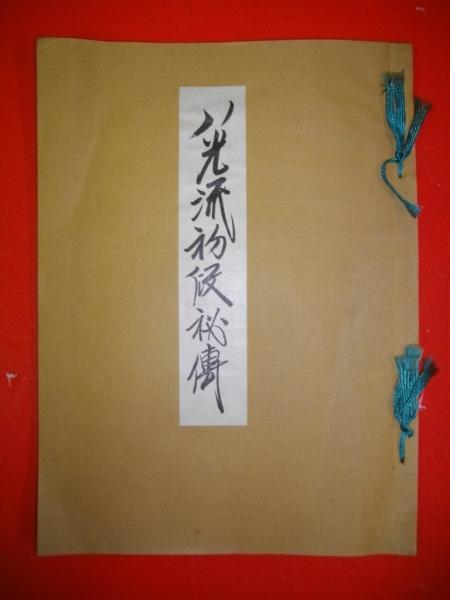 八光流初段祕傳